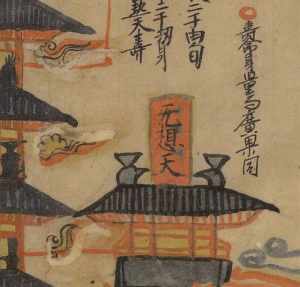 壽命身量与廣果同
二千由旬
二千劫身
天壽
无想天